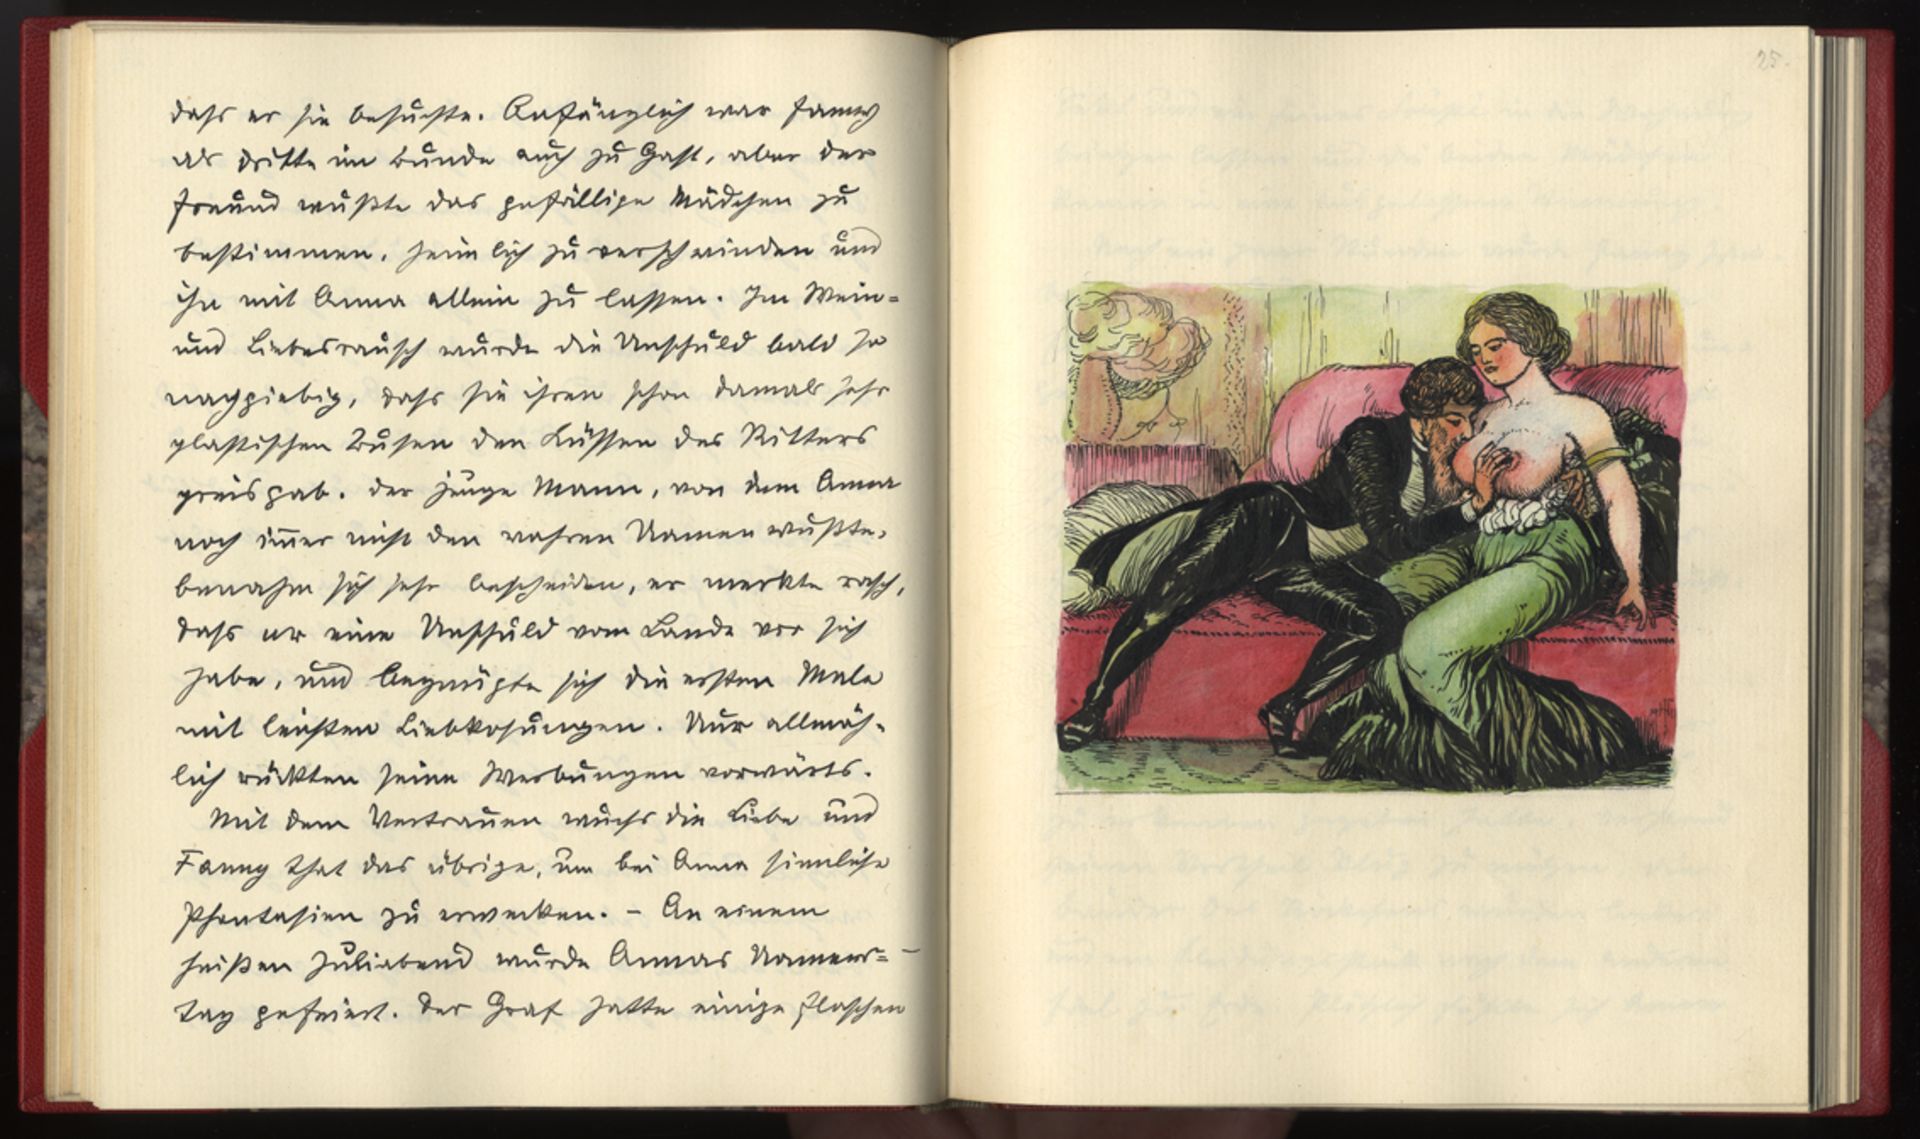 dass er sie besuchte. Anfänglich war Fanny
als dritte im Bunde auch zu Gast, aber der
Freund wußte das gefällige Mädchen zu
bestimmen, heimlich zu verschwinden und
ihn mit Anna allein zu lassen. Im Wein=
und Liebesrausch wurde die Unschuld bald so
nachgiebig, dass sie ihren schon damals sehr
plastischen Busen den Küssen des Ritters
preisgab. Der junge Mann, von dem Anna
noch im̄er nicht den wahren Namen wußte,
benahm sich sehr bescheiden, er merkte rasch,
dass er eine Unschuld vom Lande vor sich
habe, und begnügte sich die ersten Male
mit leichten Liebkosungen. Nur allmäh-
lich rückten seine Werbungen vorwärts.
Mit dem Vertrauen wuchs die Liebe und
Fanny that das übrige, um bei Anna sinnliche
Phantasien zu erwecken. – An einem
heißen Juliabend wurde Annas Namens=
tag gefeiert. Der Graf hatte einige Flaschen
25.